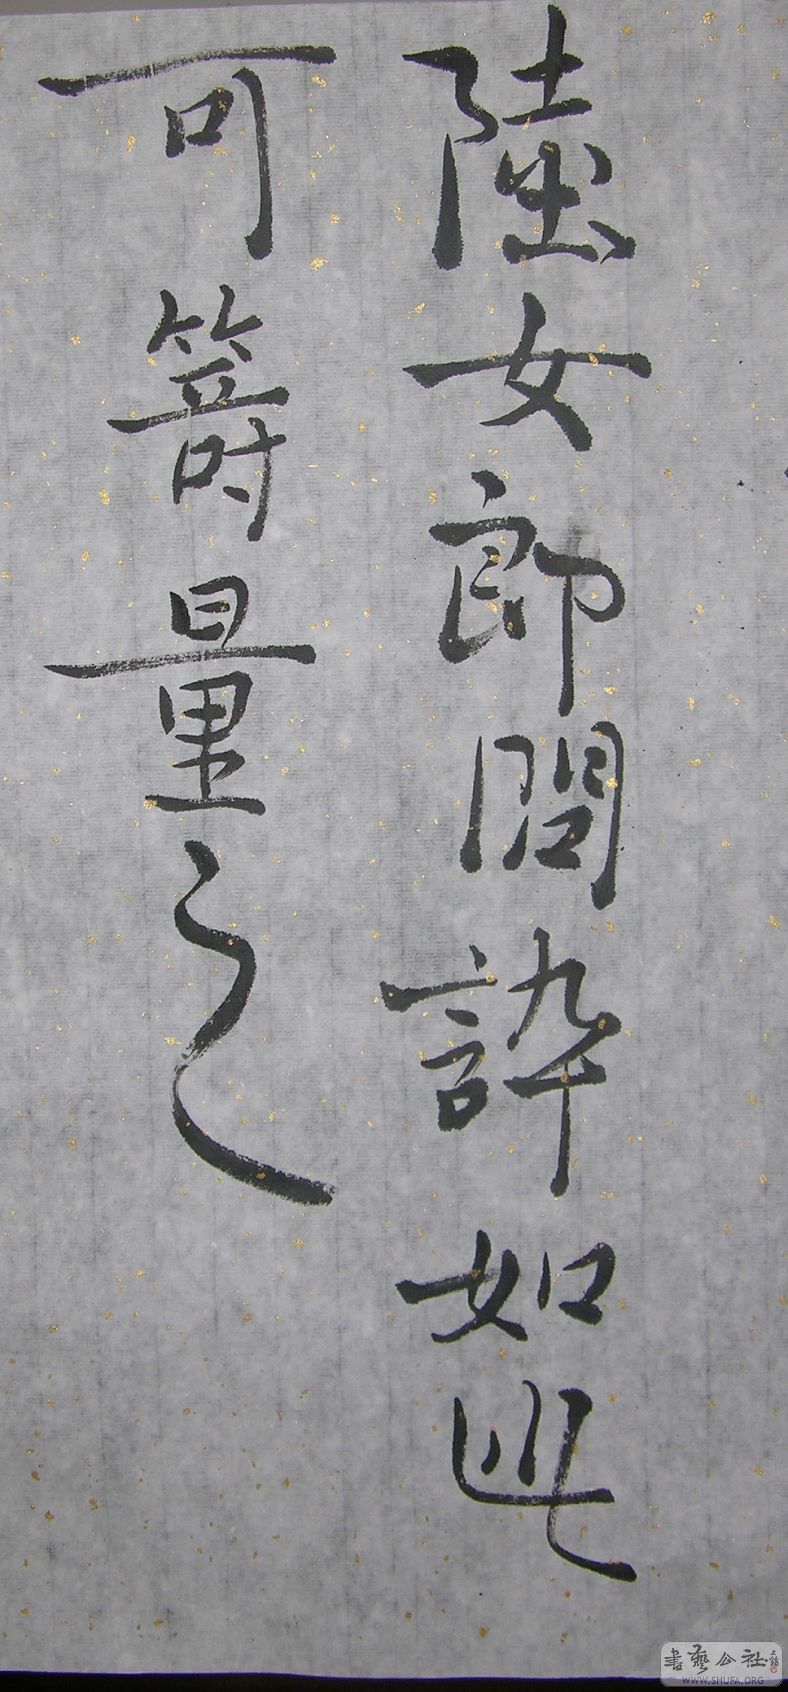 陸女郎閒誶如此
可籌量之
書藝公社
WWW.SHUFA.ORG